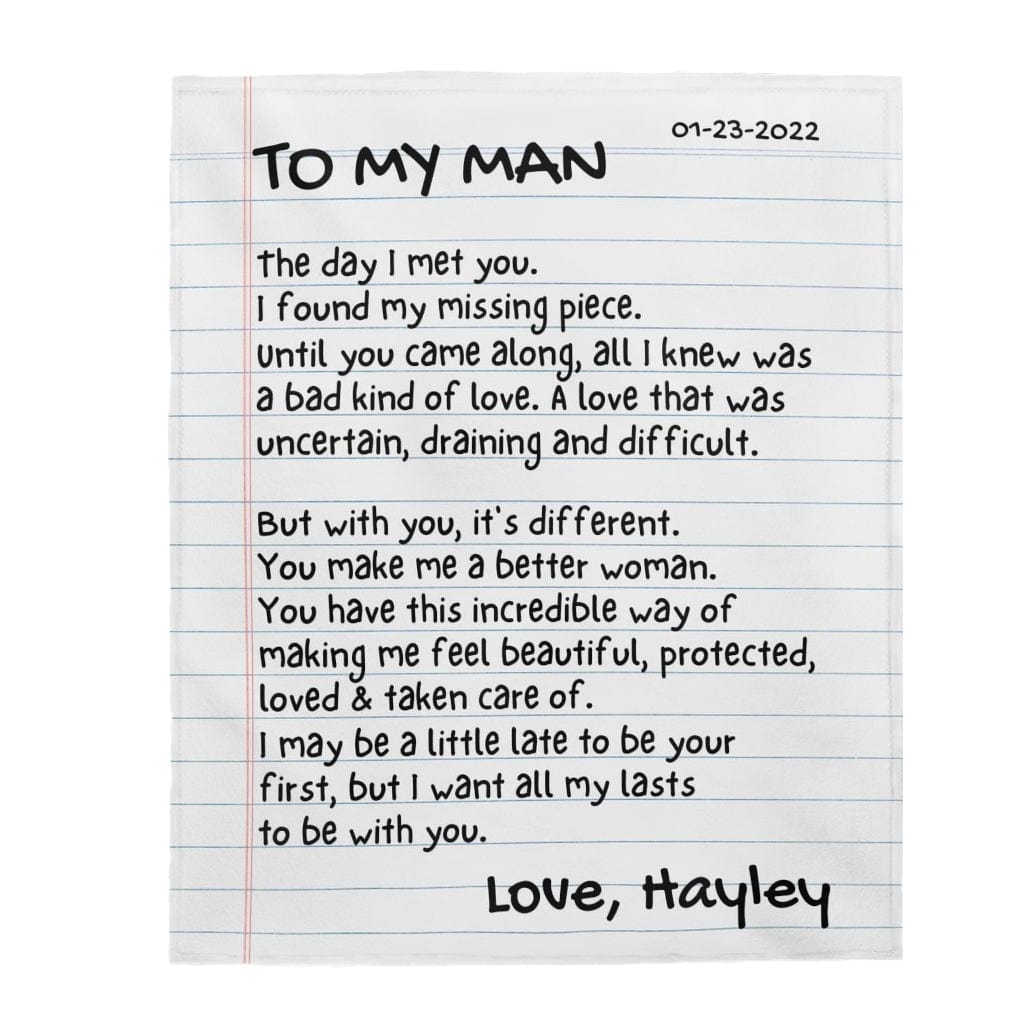 01-23-2022
TO MY MAN
The day I met you.
I found my missing piece.
Until you came along, all I knew was
a bad kind of love. A love that was
uncertain, draining and difficult.
But with you, it's different.
You make me a better woman.
You have this incredible way of
making me feel beautiful, protected,
loved & taken care of.
I may be a little late to be your
first, but I want all my lasts
to be with you.
Love, Hayley